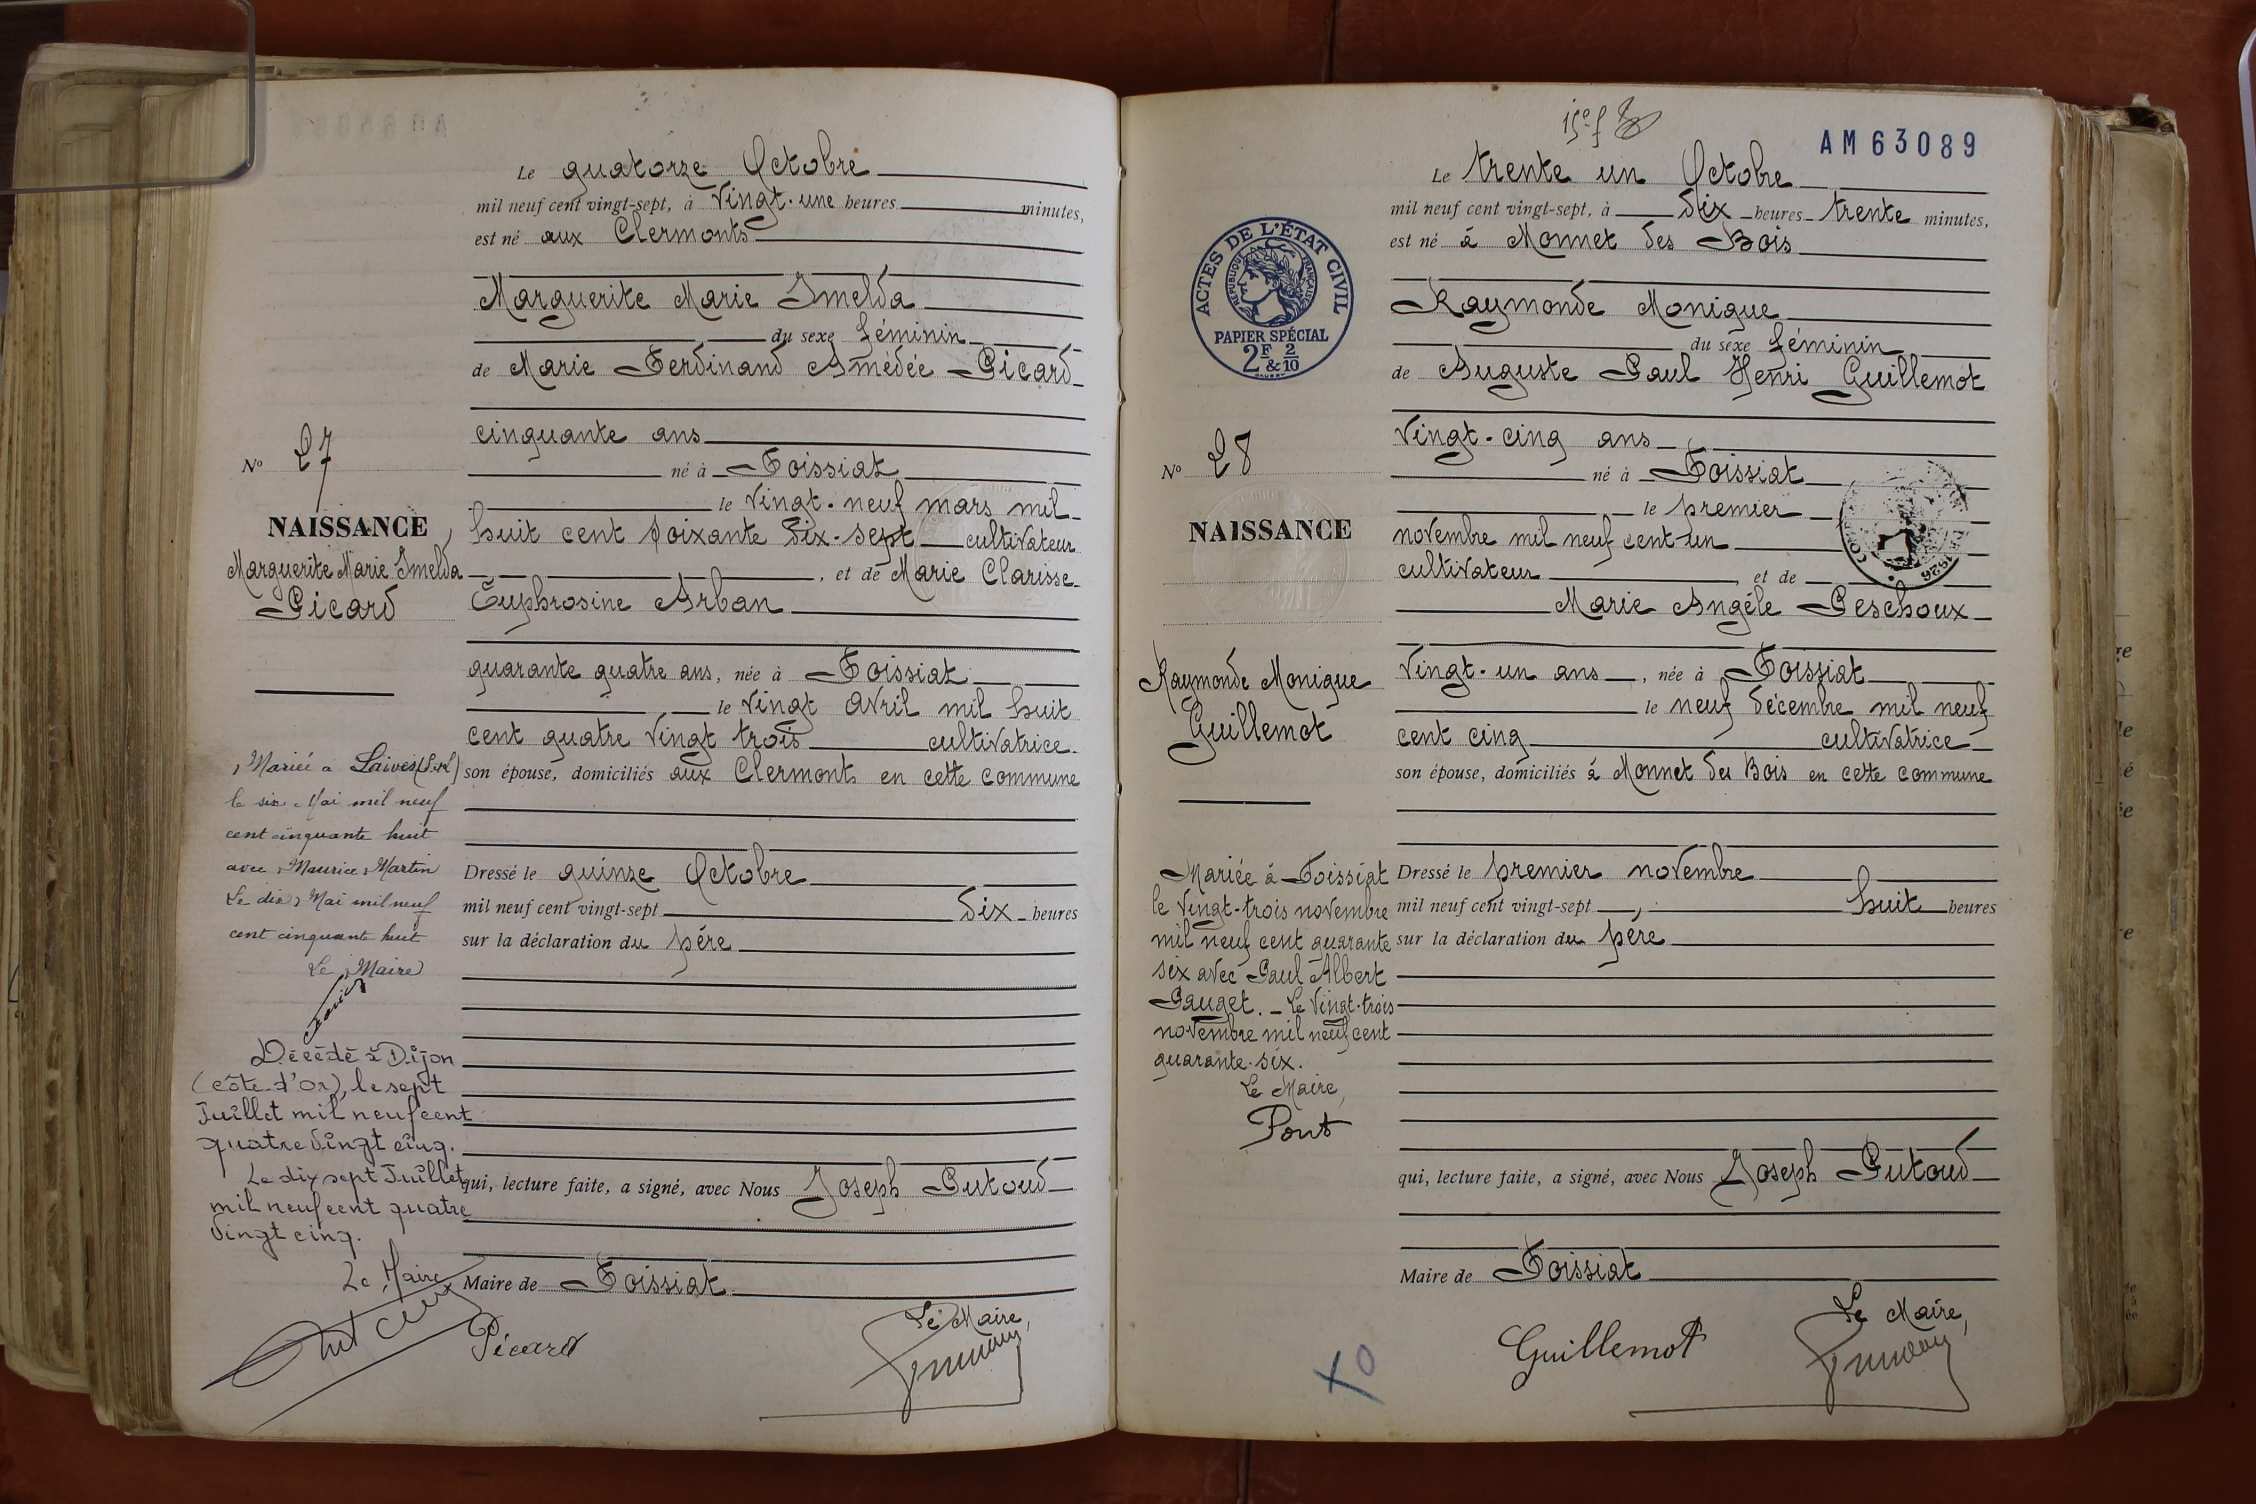 Le quatorze Octobre
mil neuf cent vingt-sept, à Vingt-une heures minutes,
est né aux Clermonts
Marguerite Marie Imelda
du sexe féminin
de Marie Ferdinand Amédée Picard
cinquante ans
né à Foissiat
le Vingt-neuf mars mil
huit cent soixante dix-sept cultivateur
, et de Marie Clarisse
Euphrosine Arban
quarante quatre ans, née à Foissiat
le Vingt avril mil huit
cent quatre vingt trois cultivatrice
son épouse, domiciliés aux Clermonts en cette commune
Dressé le quinze Octobre
mil neuf cent vingt-sept dix heures
sur la déclaration du père
qui, lecture faite, a signé, avec Nous Joseph Putoud
Maire de Foissiat
Le Maire,
Picard
No 27
NAISSANCE
Marguerite Marie Imelda
Picard
Mariée à Laives (S.&L)
le six Mai mil neuf
cent cinquante huit
avec Maurice Martin
Le dix Mai mil neuf
cent cinquante huit
Le Maire
Décédé à Dijon
(Côte-d'Or), le sept
Juillet mil neuf cent
quatre vingt cinq.
Le dix sept Juillet
mil neuf cent quatre
vingt cinq.
Le Maire
AM63089
Le trente un Octobre
mil neuf cent vingt-sept, à dix heures trente minutes,
est né à Monnet des Bois
Raymonde Monique
du sexe féminin
de Auguste Paul Henri Guillemot
Vingt-cinq ans
né à Foissiat
le premier
novembre mil neuf cent-un
cultivateur et de
Marie Angèle Peschoux
Vingt-un ans, née à Foissiat
le neuf décembre mil neuf
cent cinq cultivatrice
son épouse, domiciliés à Monnet des Bois en cette commune
Dressé le premier novembre
mil neuf cent vingt-sept, huit heures
sur la déclaration du père
qui, lecture faite, a signé, avec Nous Joseph Putoud
Maire de Foissiat
Le Maire,
Guillemot
ACTES DE L'ÉTAT CIVIL
RÉPUBLIQUE FRANÇAISE
PAPIER SPÉCIAL
2F & 2/10
No 28
NAISSANCE
Raymonde Monique
Guillemot
Mariée à Foissiat
le Vingt-trois novembre
mil neuf cent quarante
six avec Paul Albert
Pauget. - Le Vingt-trois
novembre mil neuf cent
quarante-six.
Le Maire,
Pont
XO